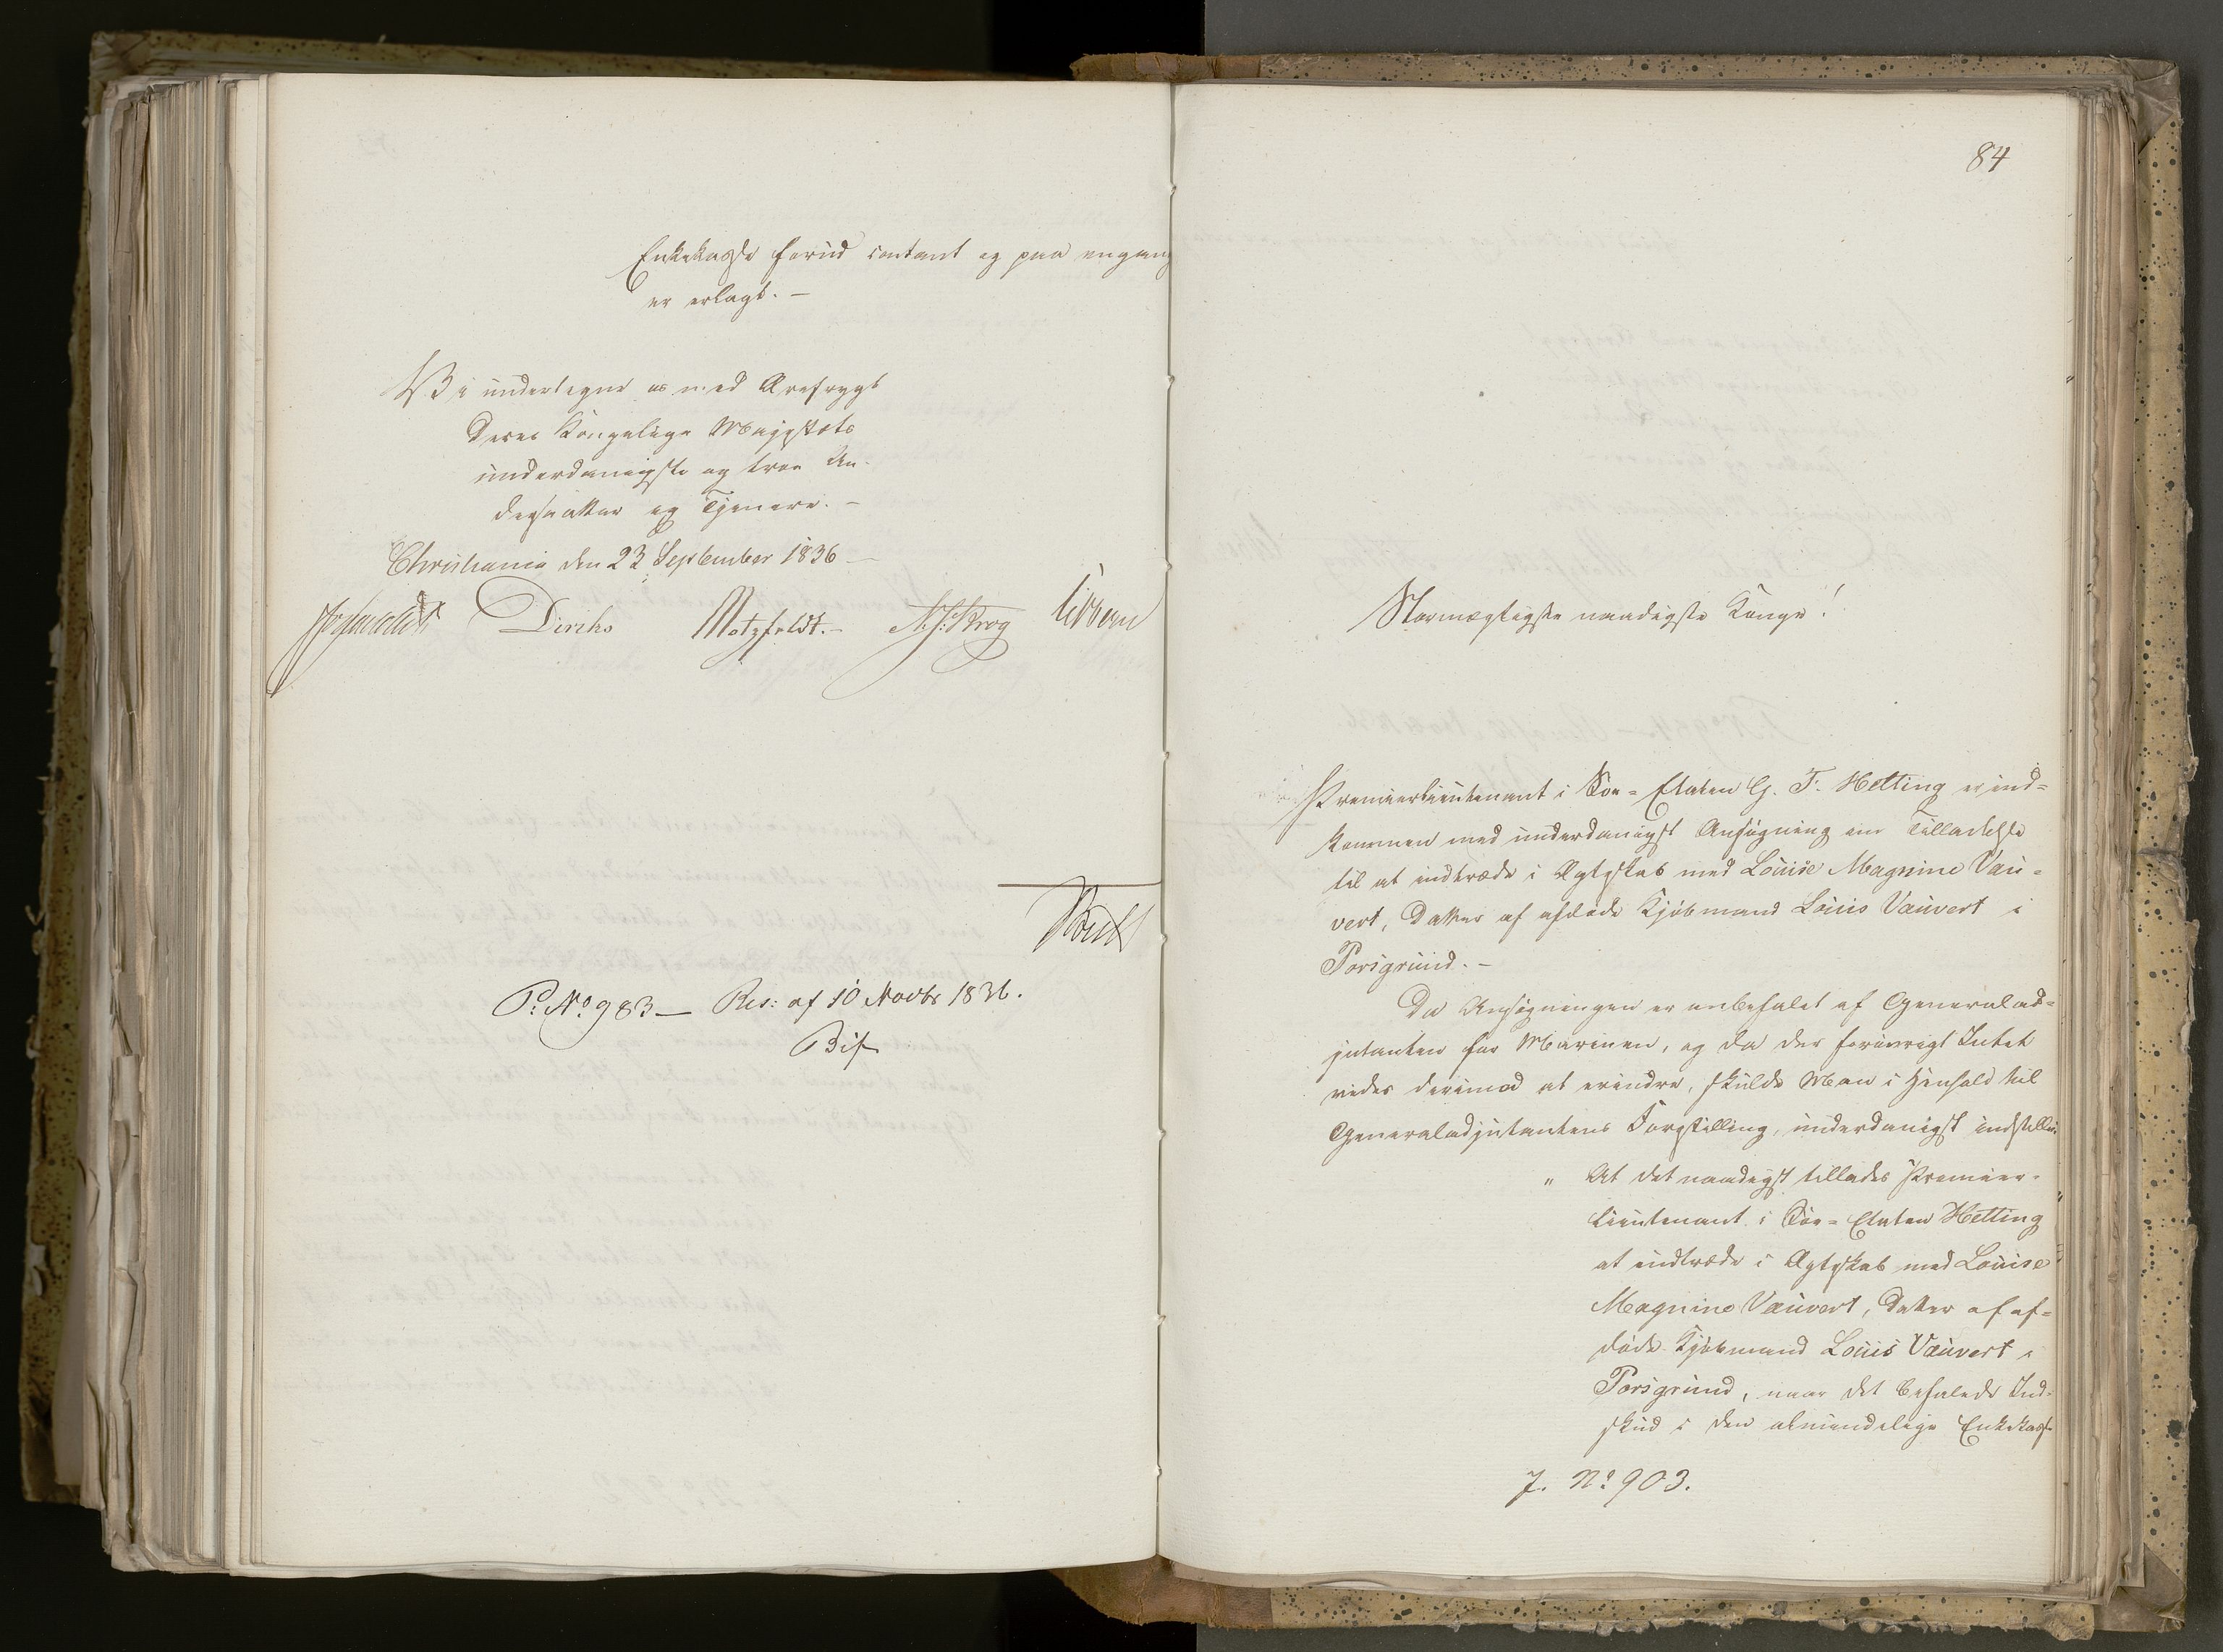 Enkekasse forud contant og paa engang
er erlagt. —
Vi undertegne os med Ærefrygt
Deres Kongelige Majestæts
underdanigste og troe Un-
dersaatter og Tjenere. —
Christiania den 23 September 1836 —
Diriks Motzfeldt. — Krog Vibe
P: No 983 — Res: af 10 Novbr 1836.
84
Stormægtigste naadigste Konge!
Premierlieutenant i Søe-Etaten G. F. Hetting er ind-
kommen med underdanigst Ansøgning om Tilladelse
til at indtræde i Ægteskab med Louise Magnine Vau-
vert, Datter af afdøde Kjøbmand Louis Vauvert i
Porsgrund. —
Da Ansøgningen er anbefalet af Generalad-
jutanten for Marinen, og da der forøvrigt Intet
vides derimod at erindre, skulde Man i Henhold til
Generaladjutantens Forestilling, underdanigst indstille:
" At det naadigst tillades Premier-
lieutenant i Søe-Etaten Hetting
at indtræde i Ægteskab med Louise
Magnine Vauvert, Datter af af-
døde Kjøbmand Louis Vauvert i
Porsgrund, naar det befalede Ind-
skud i den almindelige Enkekasse
J. No 903.